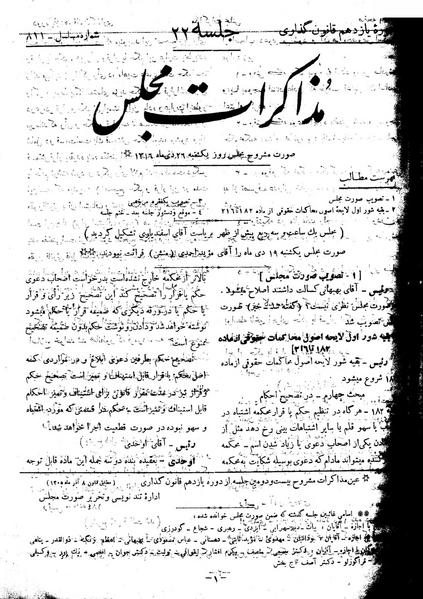 دوره یازدهم قانون گذاری
جلسه ۲۲
شماره مسلسل - ۸۱۱
مذاکرات مجلس
صورت مشروح مجلس روز یکشنبه ۲۶ دی ماه ۱۳۱۶ ※
فهرست مطالب
۱ - تصویب صورت مجلس
۲ - بقیه شور اول لایحه اصول محاکمات حقوقی از ماده ۱۸۲ تا ۲۱۶
۳ - تصویب یکفقره مرخصی
۴ - موقع و دستور جلسه بعد - ختم جلسه
( مجلس یک ساعت و سه ربع پیش از ظهر بریاست آقای اسفندیاری تشکیل گردید )
صورت مجلس یکشنبه ۱۹ دی ماه را آقای مؤید احمدی (منشی) قرائت نمودند ※※
[ ۱ - تصویب صورت مجلس ]
رئیس - آقای بهبهانی کسالت داشتند اصلاح میشود.
صورت مجلس نظری نیست؟ (گفته شد خیر) صورت
مجلس تصویب شد
بقیه شور اول لایحه اصول محاکمات حقوقی از ماده
۱۸۲ تا ۲۱۶]
رئیس - بقیه شور اول لایحه اصول محاکمات حقوقی از ماده
شروع میشود
مبحث چهارم - در تصحیح احکام
- هرگاه در تنظیم حکم یا قرار محکمه اشتباه در
یا سهو قلم یا سایر اشتباهات بینی رخ دهد مثل از
یکی از اصحاب دعوی یا زیاد شدن اسم - محکمه
میتواند مادام که دعوی بوسیله شکایت به محکمه
بالاتر از محکمه خارج نشده است بدرخواست اصحاب دعوی
حکم یا قرار را تصحیح کند این تصحیح زیر رأی و قرار
یا حکم یا در ورقه دیگری که ضمیمه قرار یا حکم میشود
نوشته خواهد شد و دادن رونوشت حکم بدون ضمیمه تصحیح
ممنوع است
تصحیح حکم بطرفین دعوی ابلاغ و در مواردی که
اصل حکم یا قرار قابل استیناف و تمیز است تصحیح حکم
یا قرار هم در مدت مقرر قانونی برای استیناف و تمیز احکام
قابل استیناف و تمیز است - حکم در قسمتی که مورد اشتباه
و سهو نبوده در صورت قطعیت اجرا خواهد شد.
رئیس - آقای اوحدی
اوحدی - بعقیده بنده دو سه جمله این ماده قابل توجه
※ عین مذاکرات مشروح بیست و دومین جلسه از دوره یازدهم قانون گذاری
اداره تند نویسی و تحریر صورت مجلس
※※ اسامی غائبین جلسه گذشته که ضمن صورت مجلس خوانده شده:
- ۱ -